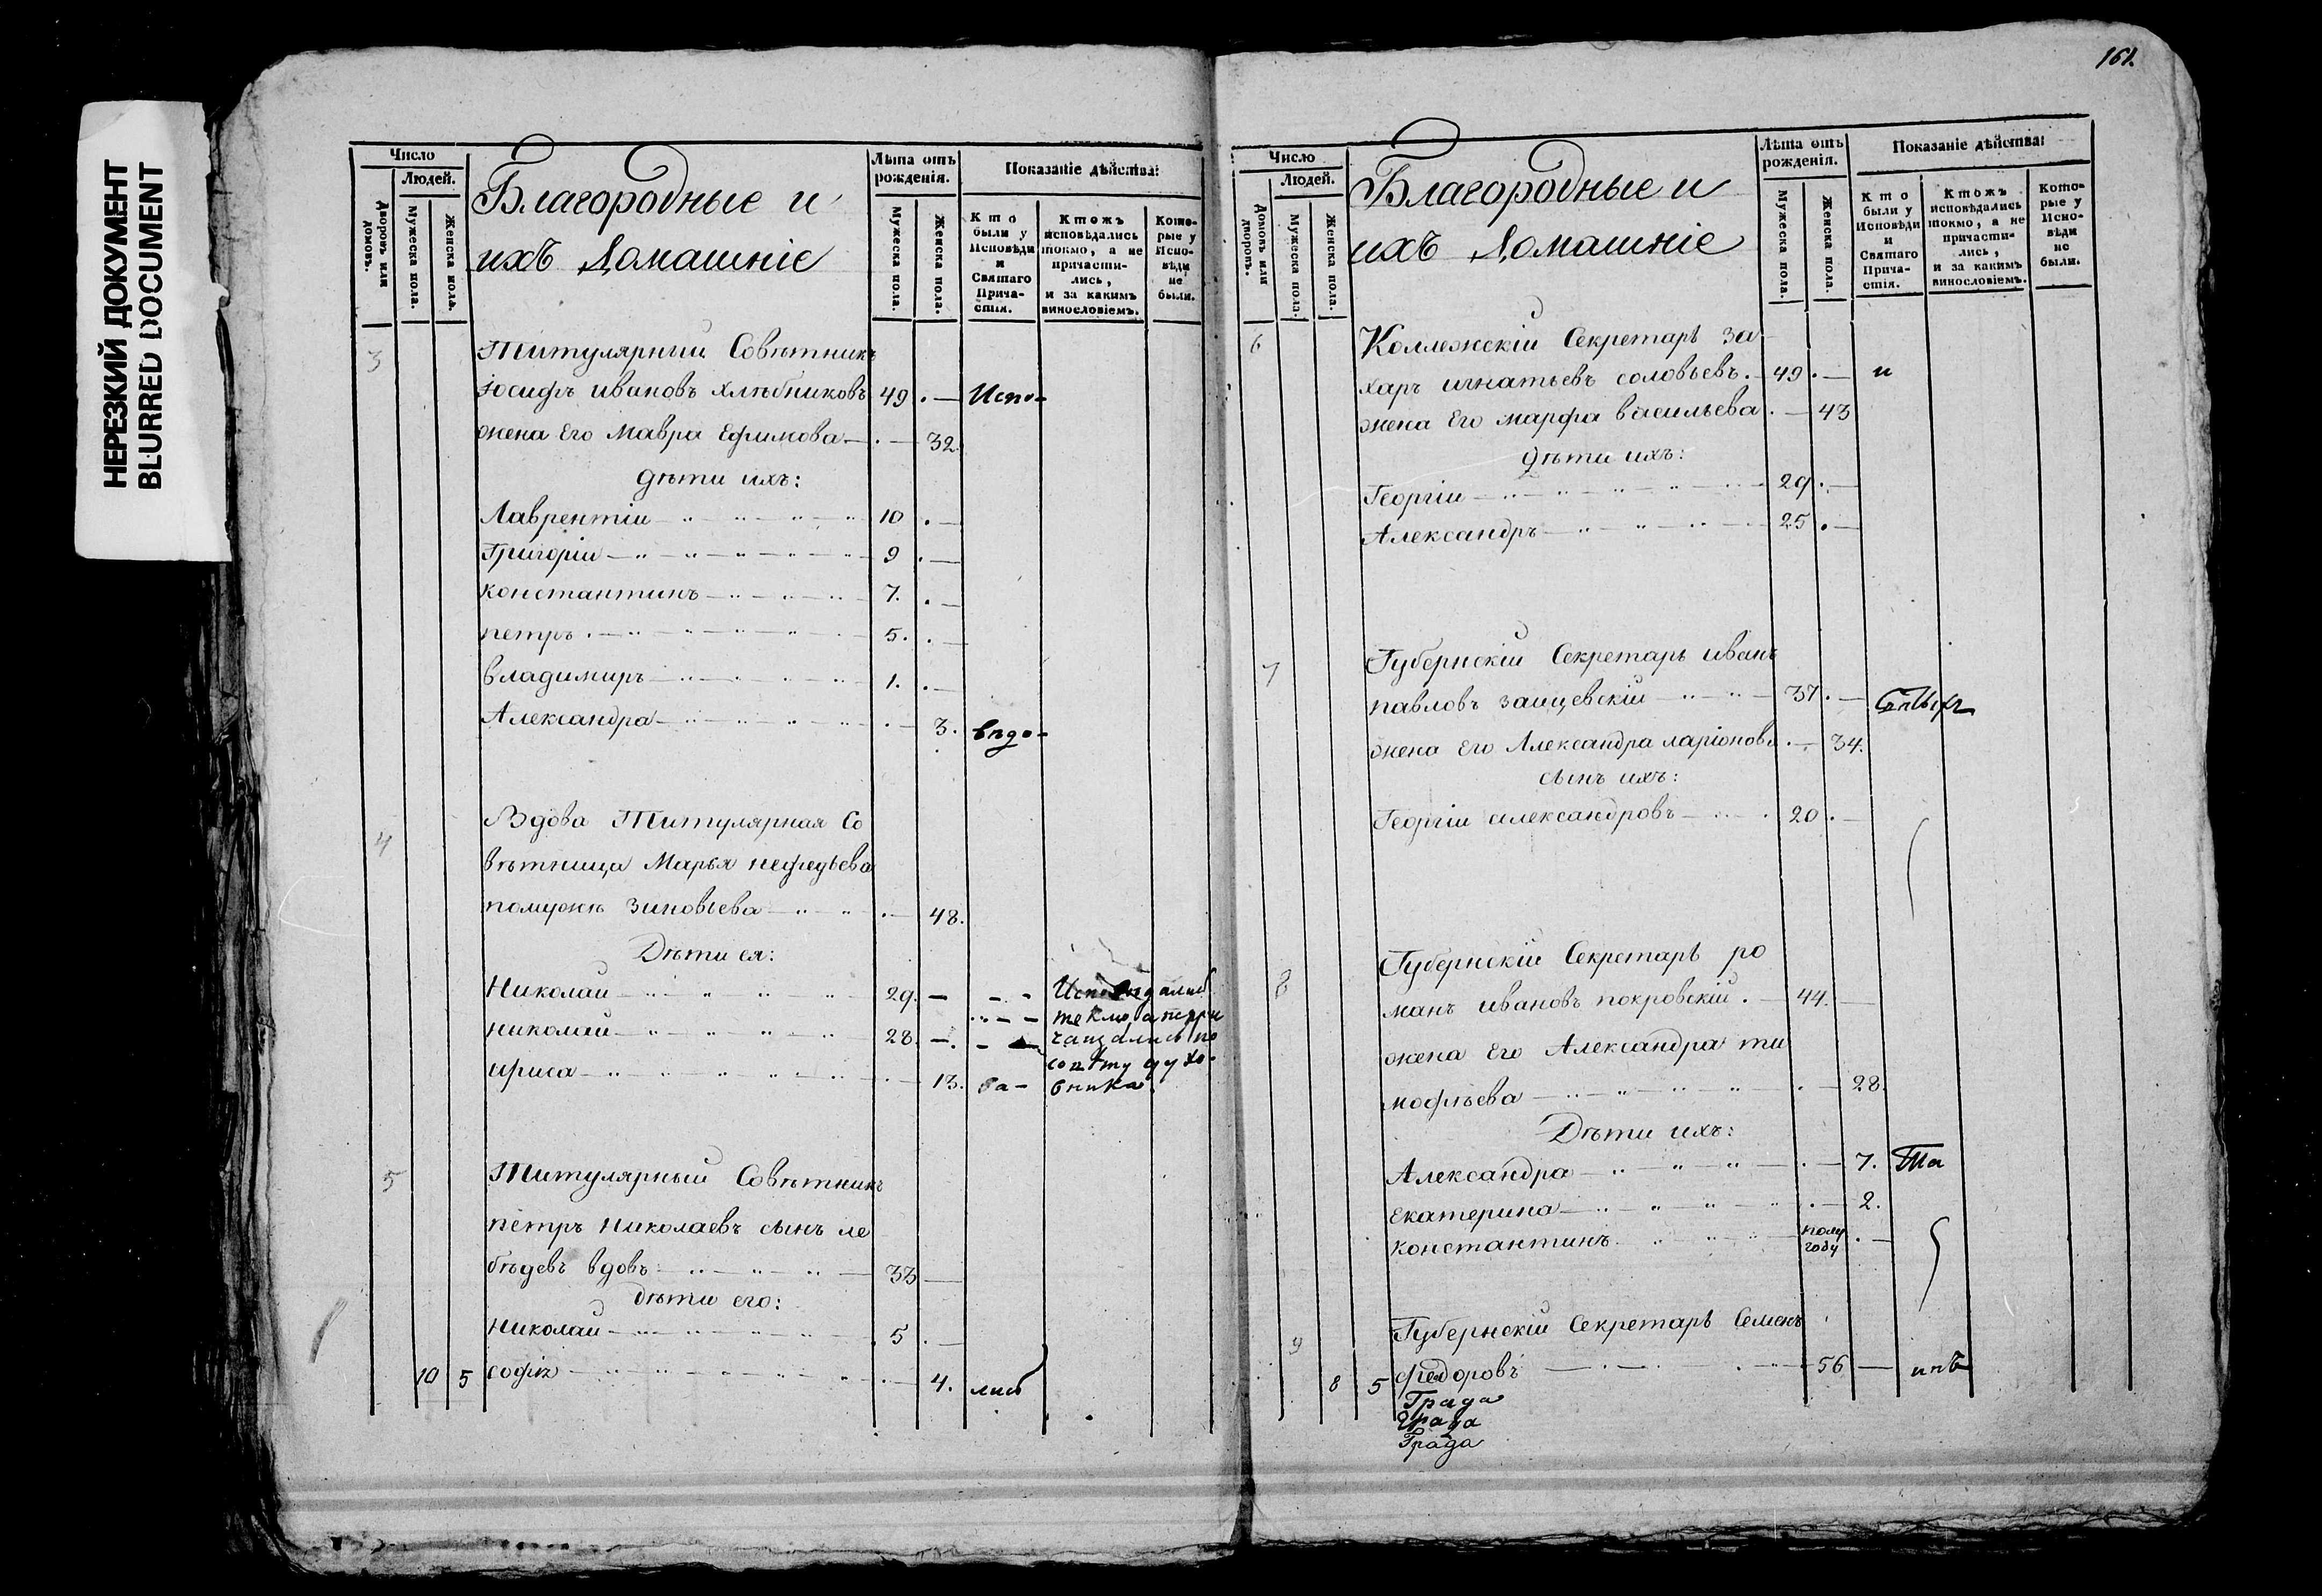 161.
НЕРЕЗКИЙ ДОКУМЕНТ
BLURRED DOCUMENT
Число
Людей.
Дворовъ или домовъ.
Мужеска пола.
Женска пола.
Благородные и
ихъ Домашніе
Лѣта отъ рожденія.
Мужеска пола.
Женска пола.
Показаніе дѣйства:
Кто были у Исповѣди и Святаго Причастія.
Ктожъ исповѣдались токмо, а не причастились, и за какимъ винословіемъ.
Которые у Исповѣди не были.
3
Титулярный Совѣтникъ
Іосифъ Ивановъ Хлѣбниковъ 49 . — Испо-
жена Его Мавра Ефимова — . — 32.
дѣти ихъ:
Лаврентій 10 . —
Григорій 9 . —
Константинъ 7. . —
Петръ 5. . —
Владимиръ 1. . —
Александра . — 3. вѣдо-
4
Вдова Титулярная Со
вѣтница Марья Нефедьева
помужѣ Зиновьева . — 48.
Дѣти ея:
Николай 29. — - - Исповѣдались
Николай 28. — токмо, а непри
чащались по
совѣту духо-
Ириса . — 13. ва- вника.
5
Титулярный Совѣтникъ
Петръ Николаевъ сынъ Ле
бѣдевъ вдовъ 33 —
дѣти его:
Николай 5 . —
10 5 Софія . — 4. лись
Число
Людей.
Домовъ или дворовъ.
Мужеска пола.
Женска пола.
Благородные и
ихъ Домашніе
Лѣта отъ рожденія.
Мужеска пола.
Женска пола.
Показаніе дѣйства:
Кто были у Исповѣди и Святаго Причастія.
Ктожъ исповѣдались токмо, а не причастились, и за какимъ винословіемъ.
Которые у Исповѣди не были.
6
Коллежскій Секретарь За
харъ Игнатьевъ Соловьевъ. — 49 . — и
жена Его Марфа Васильева . — 43
дѣти ихъ:
Георгій 29 . —
Александръ 25 . —
7
Губернскій Секретарь Иванъ
Павловъ Заицевскій 37 . —
жена Его Александра Ларіонова . — 34.
сынъ ихъ:
Георгій Александровъ 20 . —
8
Губернскій Секретарь Ро
манъ Ивановъ Покровскій. — 44. —
жена Его Александра Ти
мофѣева . — 28.
Дѣти ихъ:
Александра . — 7. Та
Екатерина . — 2.
Константинъ полу году . —
9
Губернскій Секретарь Семенъ
8 5 Федоровъ 56 —
Града
Града
Града